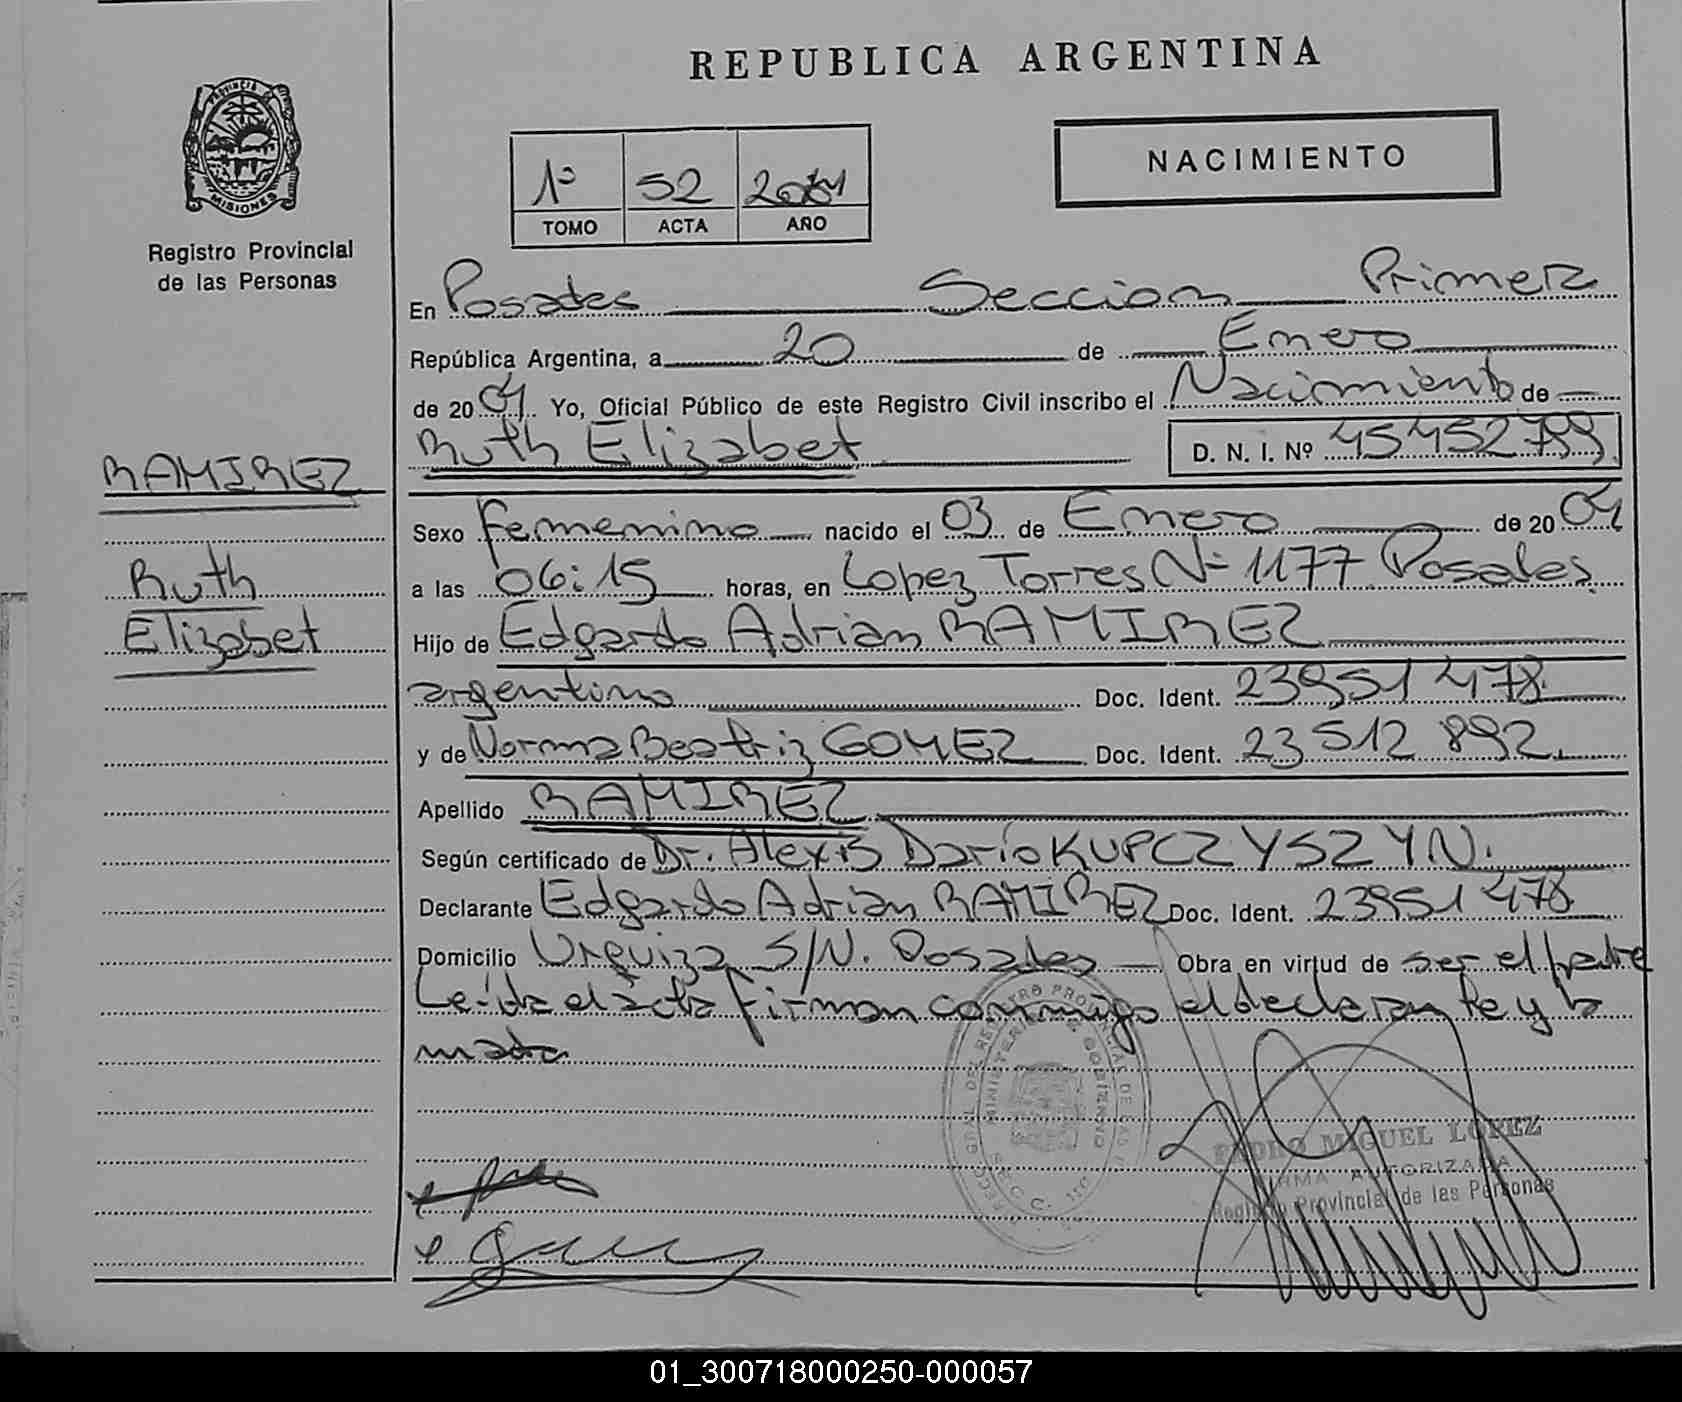 REPUBLICA ARGENTINA
NACIMIENTO
1º 52 2004
TOMO ACTA AÑO
PROVINCIA DE MISIONES
Registro Provincial
de las Personas
RAMIREZ
Ruth
Elizabet
En Posadas Seccion Primera
República Argentina, a 20 de Enero
de 2004 Yo, Oficial Público de este Registro Civil inscribo el Nacimiento de
Ruth Elizabet D. N. I. Nº 45452799
Sexo femenino nacido el 03 de Enero de 2004
a las 06:15 horas, en Lopez Torres Nº 1177 Posadas
Hijo de Edgardo Adrian RAMIREZ
argentino Doc. Ident. 23951478
y de Norma Beatriz GOMEZ Doc. Ident. 23512892
Apellido RAMIREZ
Según certificado de Dr. Alexis Darío KUPCZYSZYN.
Declarante Edgardo Adrian RAMIREZ Doc. Ident. 23951478
Domicilio Urquiza S/N. Posadas Obra en virtud de ser el padre
Leída el acta firman conmigo el declarante y la
madre
PEDRO MIGUEL LOPEZ
FIRMA AUTORIZADA
Registro Provincial de las Personas
01_300718000250-000057